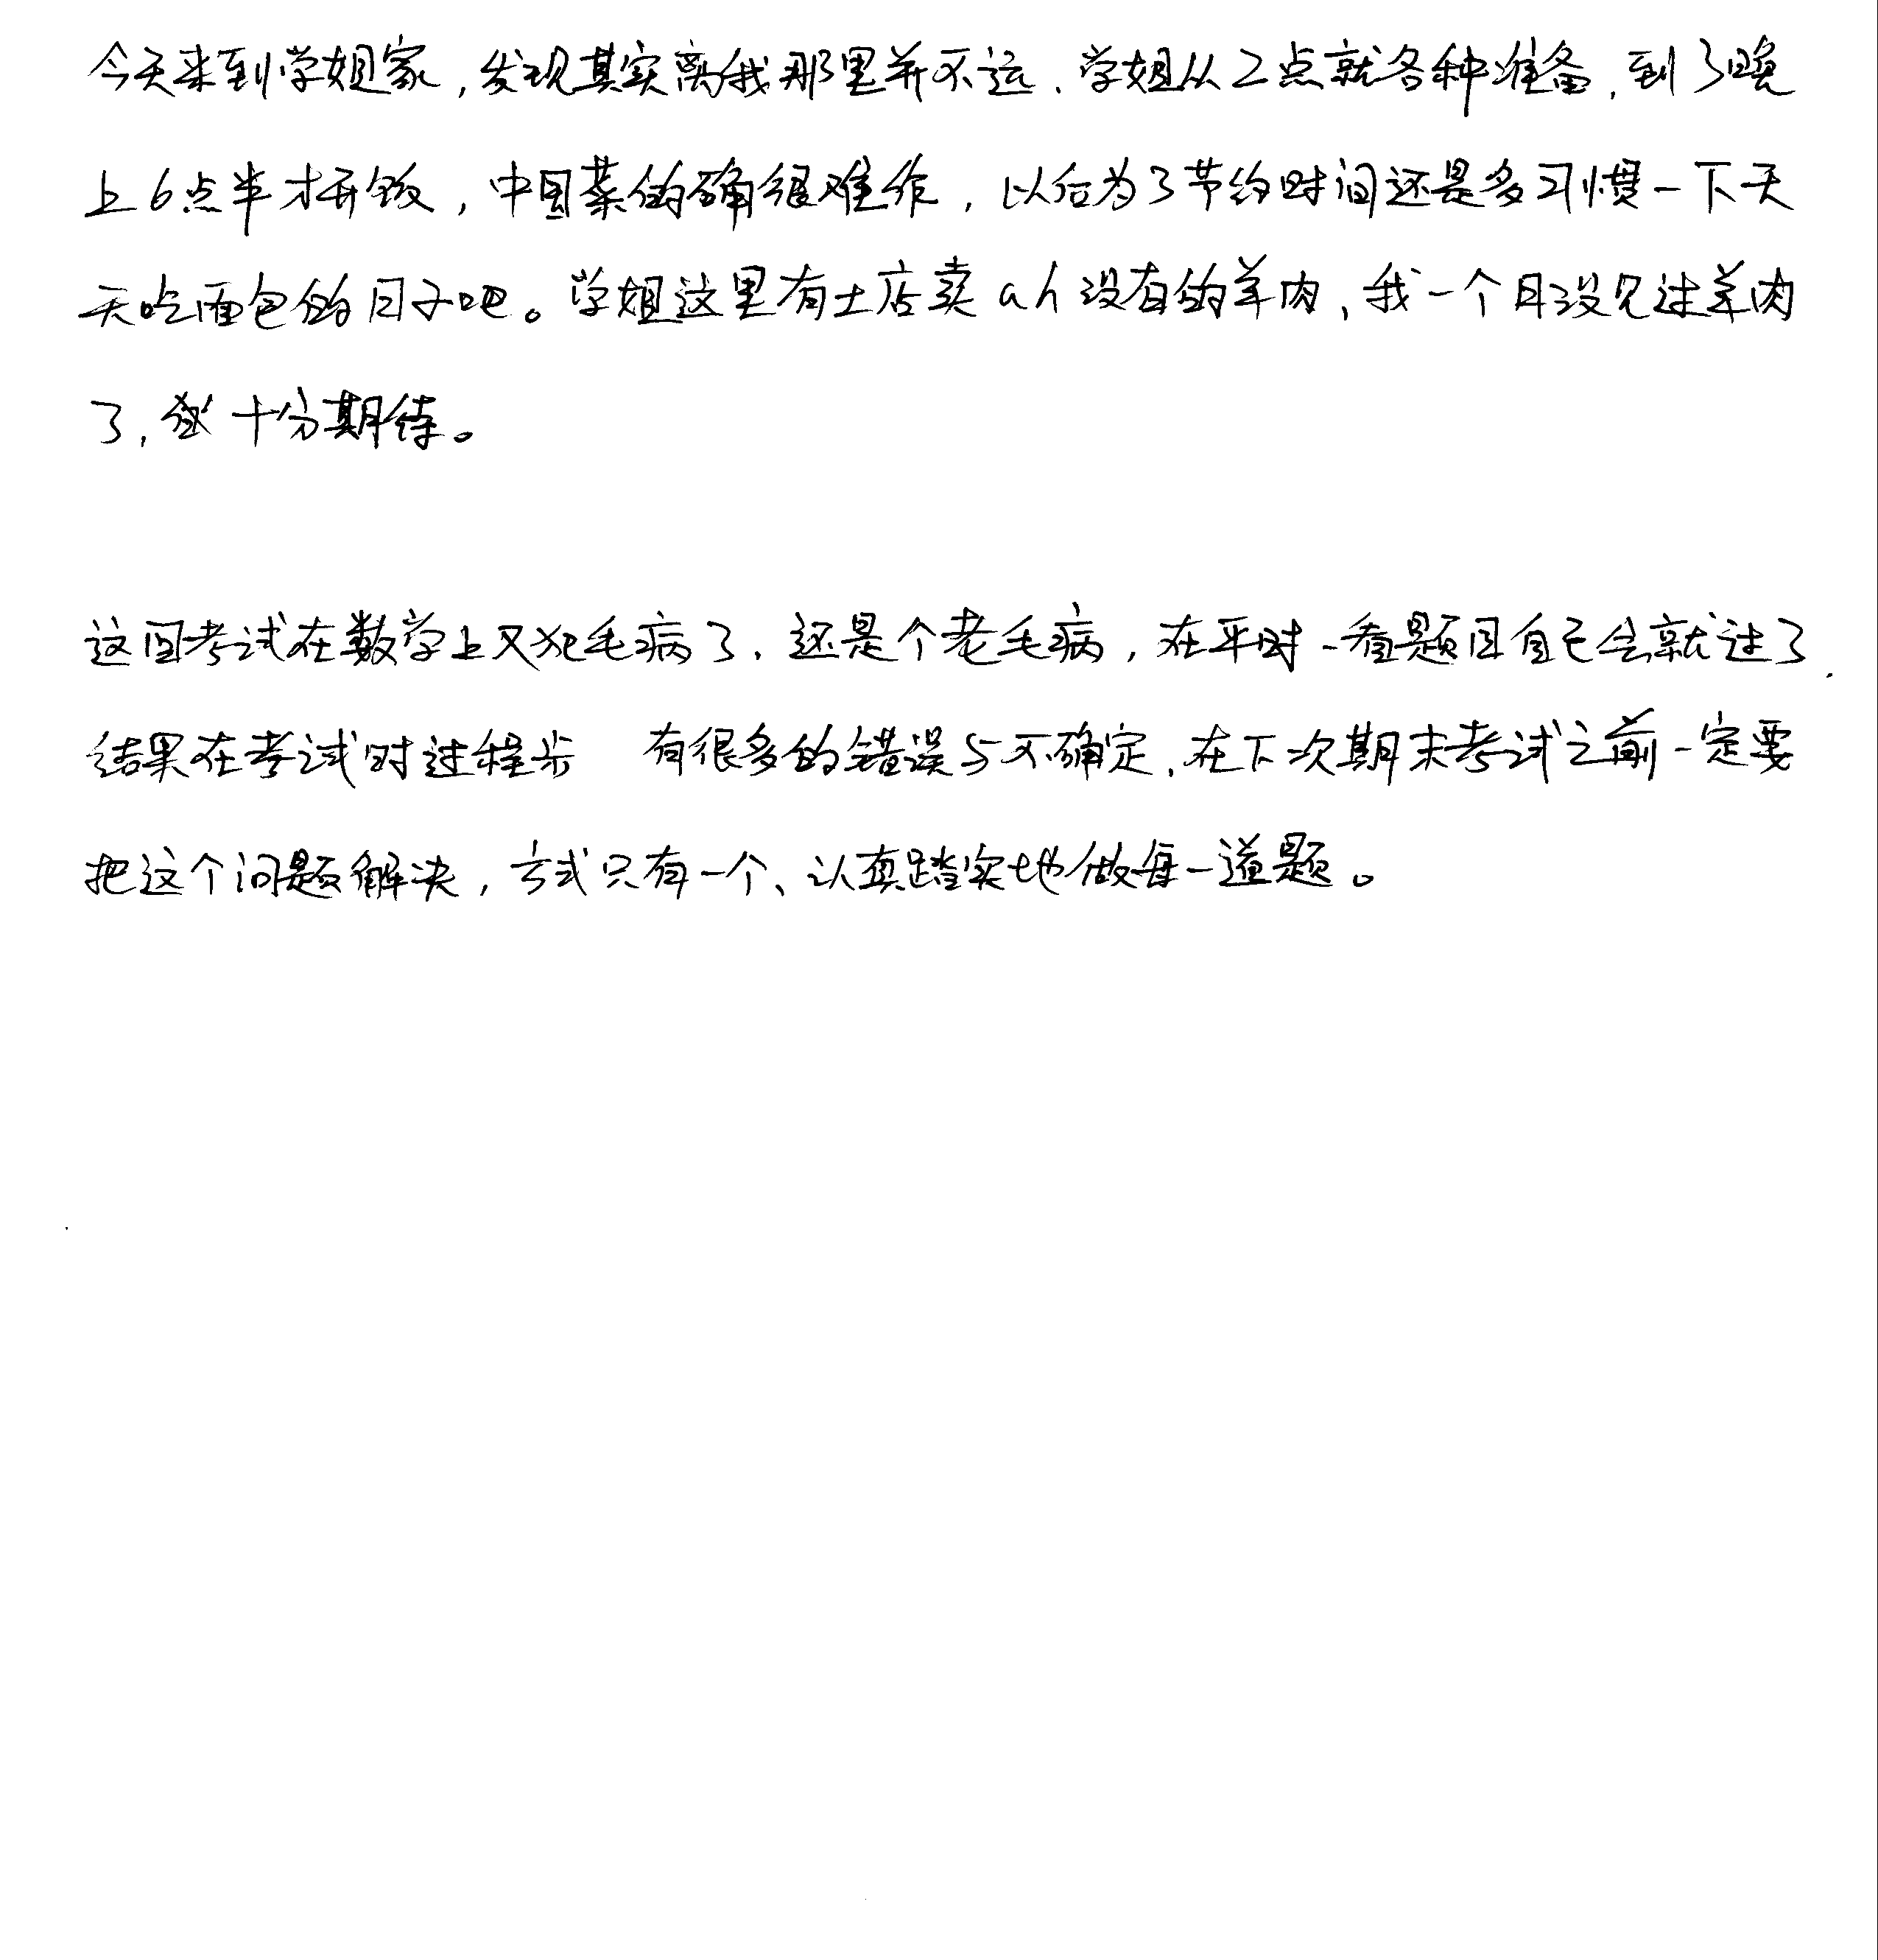 今天来到学姐家,发现其实离我那里并不远.学姐从2点就各种准备,到了晚
上6点半才开饭,中国菜的确很难作,以后为了节约时间还是多习惯一下天
天吃面包的日子吧。学姐这里有土店卖ah没有的羊肉,我一个月没见过羊肉
了,十分期待。
这回考试在数学上又犯毛病了.还是个老毛病,在平时一看题目自已会就过了.
结果在考试时过程步 有很多的错误与不确定,在下次期末考试之前一定要
把这个问题解决,方式只有一个、认真踏实地做每一道题。